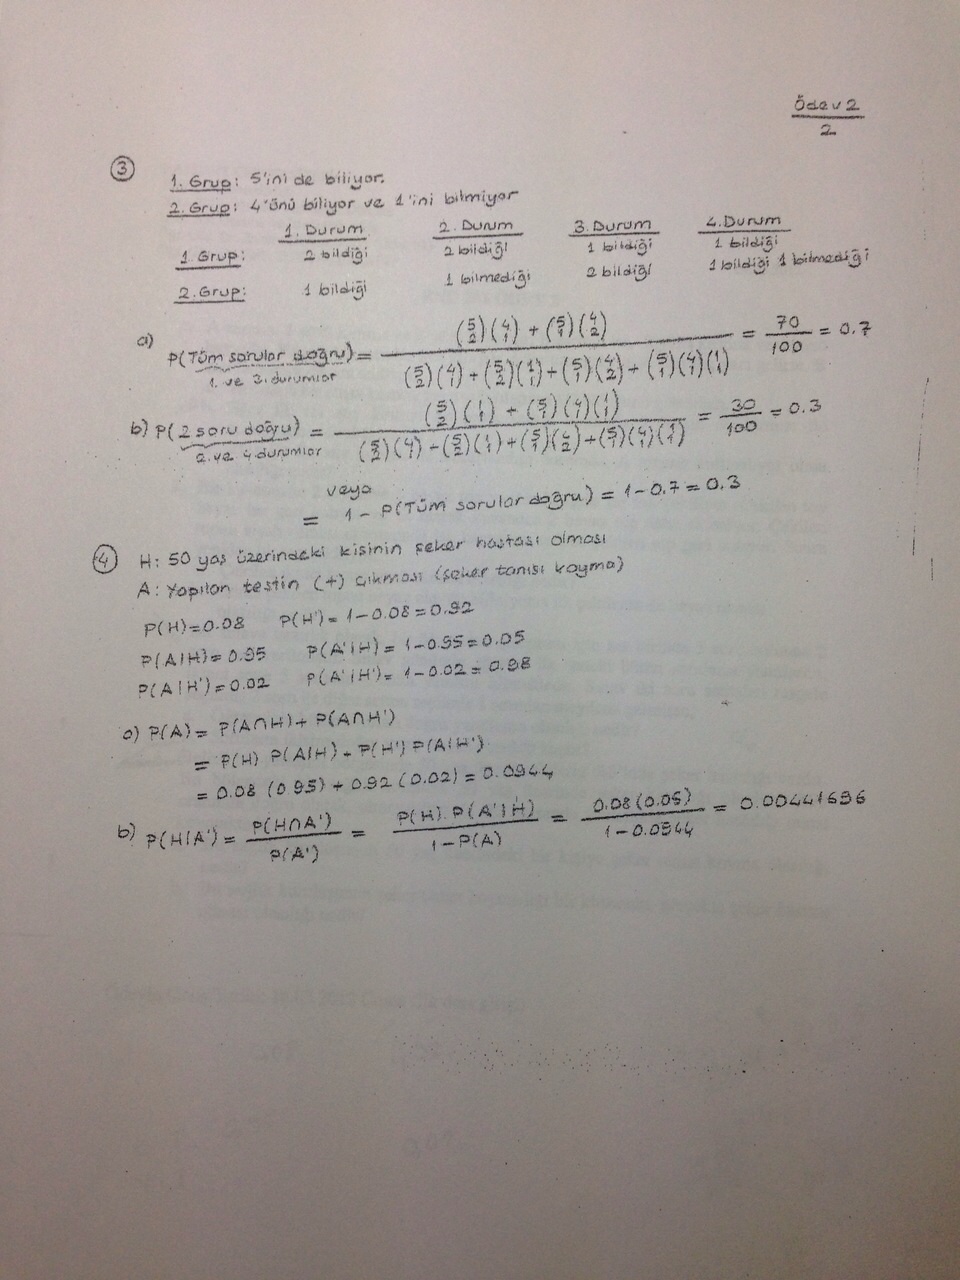 Ödev 2
2
③
1. Grup: 5'ini de biliyor.
2. Grup: 4'ünü biliyor ve 1'ini bilmiyor
1. Durum 2. Durum 3. Durum 4. Durum
1. Grup: 2 bildiği 2 bildiği 1 bildiği 1 bildiği
2. Grup: 1 bildiği 1 bilmediği 2 bildiği 1 bildiği 1 bilmediği
a) P(Tüm sorular doğru) = ((5 2)(4 1) + (5 1)(4 2)) / ((5 2)(4 1) + (5 2)(1 1) + (5 1)(4 2) + (5 1)(4 1)(1 1)) = 70/100 = 0.7
1. ve 3. durumlar
b) P(2 soru doğru) = ((5 2)(1 1) + (5 1)(4 1)(1 1)) / ((5 2)(4 1) + (5 2)(1 1) + (5 1)(4 2) + (5 1)(4 1)(1 1)) = 30/100 = 0.3
2. ve 4. durumlar
veya
= 1 - P(Tüm sorular doğru) = 1-0.7 = 0.3
④ H: 50 yaş üzerindeki kişinin şeker hastası olması
A: Yapılan testin (+) çıkması (şeker tanısı koyma)
P(H)=0.08 P(H')= 1-0.08=0.92
P(A|H)=0.95 P(A'|H)= 1-0.95=0.05
P(A|H')=0.02 P(A'|H')= 1-0.02=0.98
a) P(A) = P(A∩H) + P(A∩H')
= P(H) P(A|H) + P(H') P(A|H')
= 0.08 (0.95) + 0.92 (0.02) = 0.0944
b) P(H|A') = P(H∩A')/P(A') = P(H). P(A'|H)/1-P(A) = 0.08(0.05)/1-0.0944 = 0.00441696